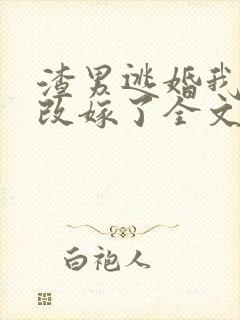 渣男逃婚我
改嫁了全文
白袍人